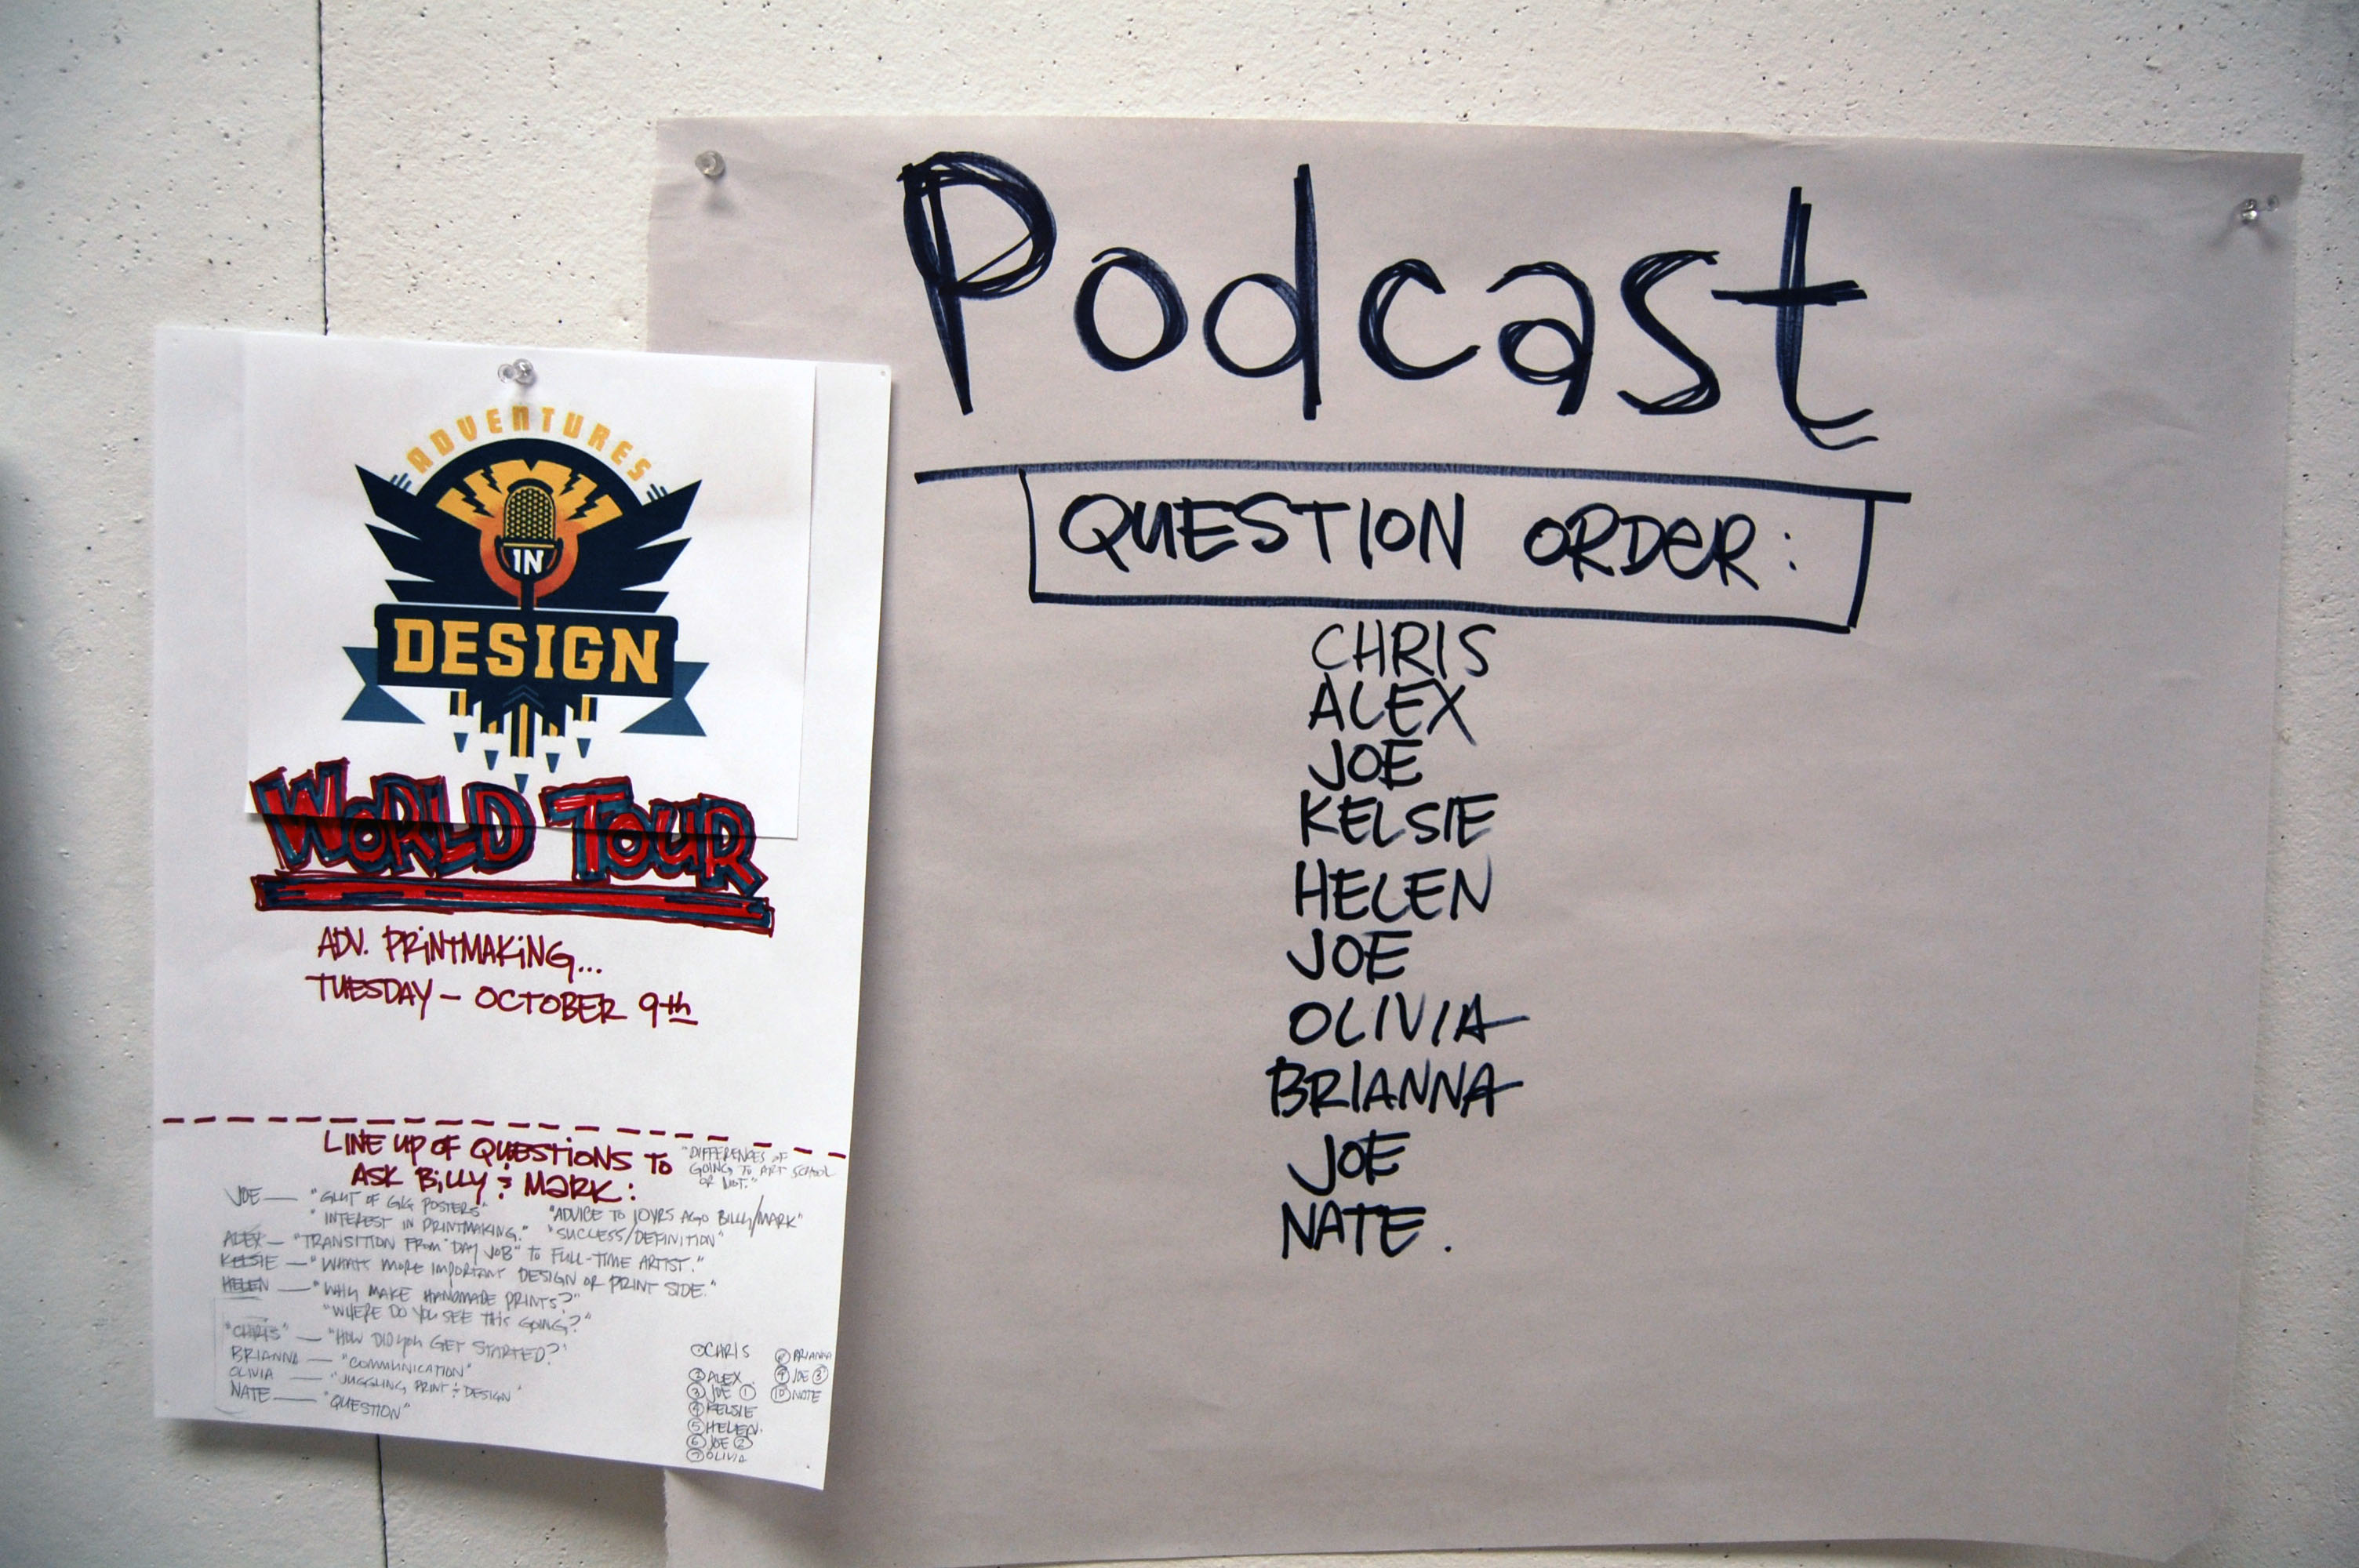 ADVENTURES
IN
DESIGN
WORLD TOUR
ADV. PRINTMAKING...
TUESDAY - OCTOBER 9th
LINE UP OF QUESTIONS TO
ASK BILLY & MARK:
"DIFFERENCES OF
GOING TO ART SCHOOL
OR NOT."
JOE — "GLUT OF GIG POSTERS"
"INTEREST IN PRINTMAKING."
"ADVICE TO 10YRS AGO BILLY/MARK"
"SUCCESS/DEFINITION"
ALEX — "TRANSITION FROM "DAY JOB" TO FULL-TIME ARTIST."
KELSIE — "WHATS MORE IMPORTANT DESIGN OR PRINT SIDE."
HELEN — "WHY MAKE HANDMADE PRINTS?"
"WHERE DO YOU SEE THIS GOING?"
"CHRIS" — "HOW DID YOU GET STARTED?"
BRIANNA — "COMMUNICATION"
OLIVIA — "JUGGLING PRINT & DESIGN"
NATE — "QUESTION"
CHRIS
② ALEX
③ JOE ①
④ KELSIE
⑤ HELEN.
⑥ JOE ②
⑦ OLIVIA
BRIANNA
⑨ JOE ③
⑩ NATE
Podcast
QUESTION ORDER:
CHRIS
ALEX
JOE
KELSIE
HELEN
JOE
OLIVIA
BRIANNA
JOE
NATE.